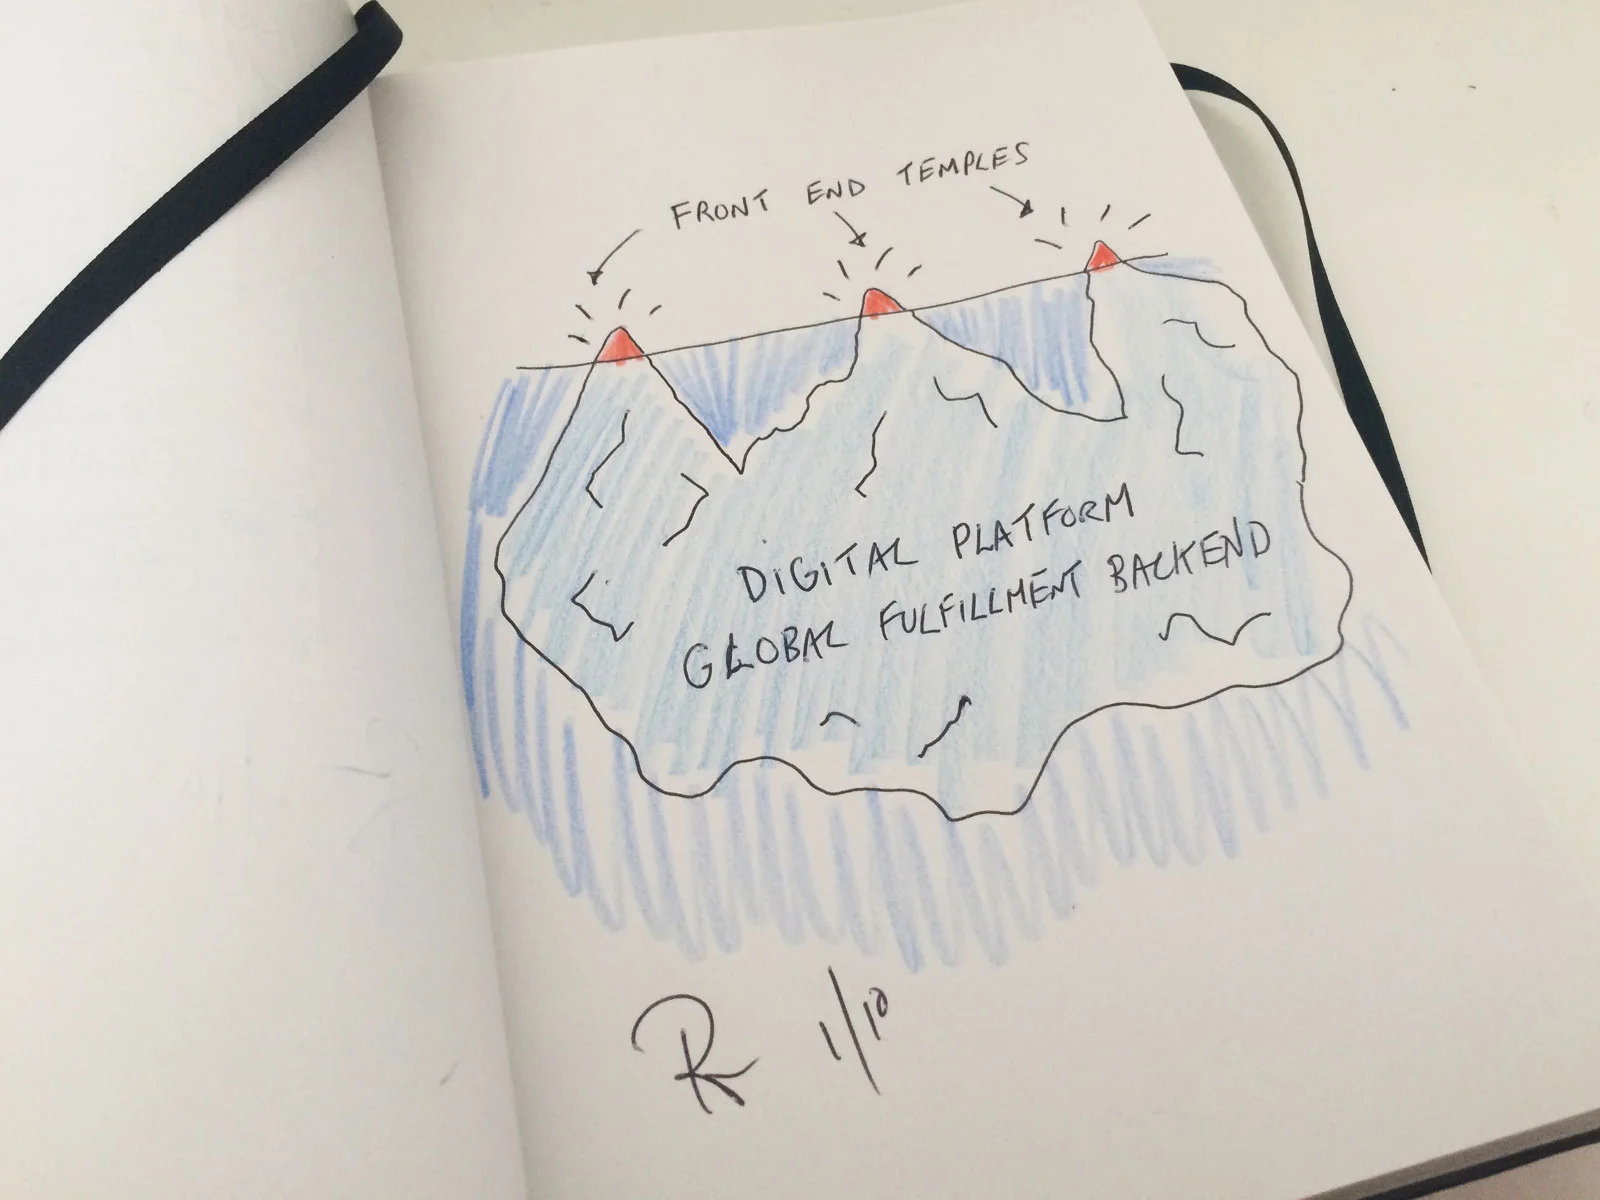 FRONT END TEMPLES
DIGITAL PLATFORM
GLOBAL FULFILLMENT BACKEND
R 1/10